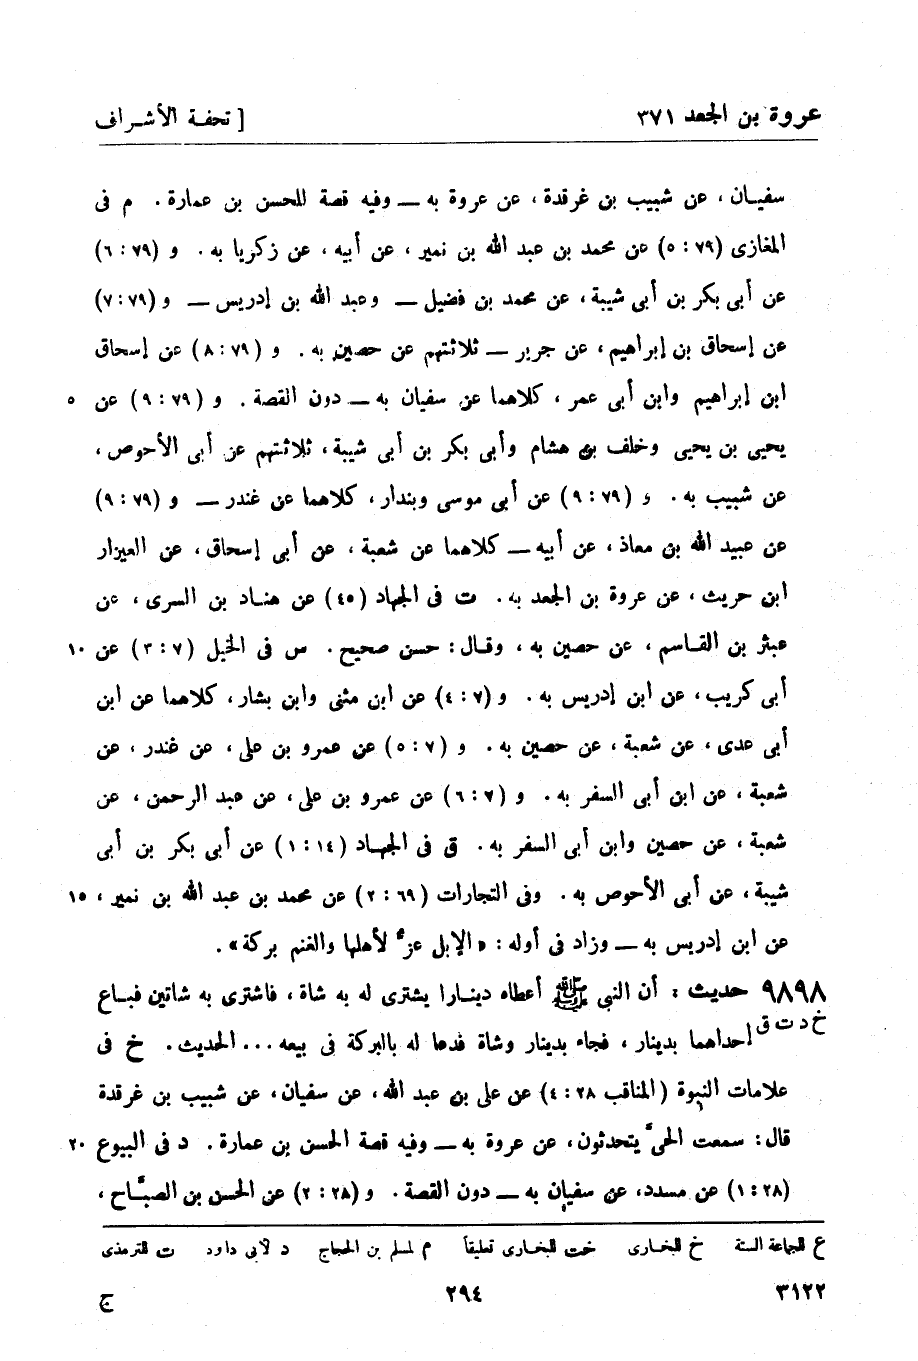 عروة بن الجعد ٣٧١ [ تحفة الأشراف
سفيان ، عن شبيب بن غرقدة ، عن عروة به ــ وفيه قصة للحسن بن عمارة . م فى
المغازى (٧٩ : ٥) عن محمد بن عبد الله بن نمير ، عن أبيه ، عن زكريا به . و (٧٩ : ٦)
عن أبى بكر بن أبى شيبة ، عن محمد بن فضيل ــ وعبد الله بن إدريس ــ و (٧٩ : ٧)
عن إسحاق بن إبراهيم ، عن جرير ــ ثلاثتهم عن حصين به . و (٧٩ : ٨) عن إسحاق
ابن إبراهيم وابن أبى عمر ، كلاهما عن سفيان به ــ دون القصة . و (٧٩ : ٩) عن ٥
يحيى بن يحيى وخلف بن هشام وأبى بكر بن أبى شيبة ، ثلاثتهم عن أبى الأحوص ،
عن شبيب به . و (٧٩ : ٩) عن أبى موسى وبندار ، كلاهما عن غندر ــ و (٧٩ : ٩)
عن عبيد الله بن معاذ ، عن أبيه ــ كلاهما عن شعبة ، عن أبى إسحاق ، عن العيزار
ابن حريث ، عن عروة بن الجعد به . ت فى الجهاد (٤٥) عن هناد بن السرى ، عن
عبثر بن القاسم ، عن حصين به ، وقال : حسن صحيح . س فى الخيل (٧ : ٣) عن ١٠
أبى كريب ، عن ابن إدريس به . و (٧ : ٤) عن ابن مثنى وابن بشار ، كلاهما عن ابن
أبى عدى ، عن شعبة ، عن حصين به . و (٧ : ٥) عن عمرو بن على ، عن غندر ، عن
شعبة ، عن ابن أبى السفر به . و (٧ : ٦) عن عمرو بن على ، عن عبد الرحمن ، عن
شعبة ، عن حصين وابن أبى السفر به . ق فى الجهاد (١٤ : ١) عن أبى بكر بن أبى
شيبة ، عن أبى الأحوص به . وفى التجارات (٦٩ : ٢) عن محمد بن عبد الله بن نمير ، ١٥
عن ابن إدريس به ــ وزاد فى أوله : « الإبل عزٌ لأهلها والغنم بركة » .
٩٨٩٨ حديث : أن النبى ﷺ أعطاه دينارا يشترى له به شاة ، فاشترى به شاتين فباع
خ د ت ق إحداهما بدينار ، فجاء بدينار وشاة فدعا له بالبركة فى بيعه ... الحديث . خ فى
علامات النبوة (المناقب ٢٨ : ٤) عن على بن عبد الله ، عن سفيان ، عن شبيب بن غرقدة
قال : سمعت الحىَّ يتحدثون ، عن عروة به ــ وفيه قصة الحسن بن عمارة . د فى البيوع ٢٠
(٢٨ : ١) عن مسدد ، عن سفيان به ــ دون القصة . و (٢٨ : ٢) عن الحسن بن الصبَّاح ،
ع للجاعة الستة خ للبخارى خت للبخارى تعليقاً م لمسلم بن الحجاج د لأبى داود ت للترمذى
٣١٢٢ ٢٩٤ ج